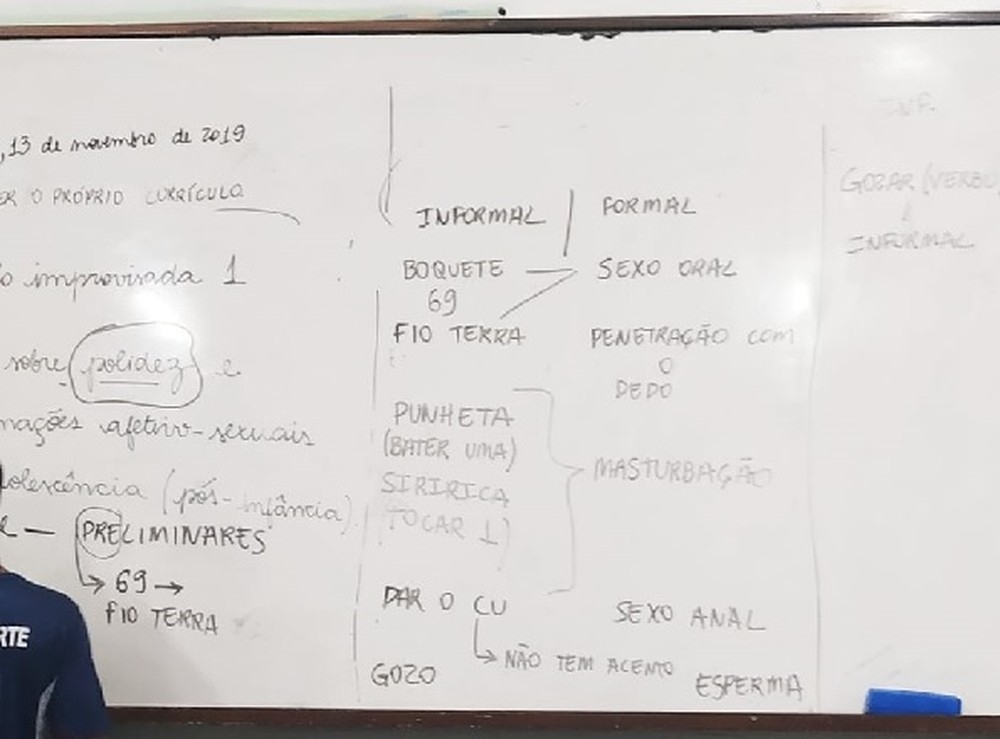 , 13 de novembro de 2019
ER O PRÓPRIO CURRÍCULO
o improvisada 1
sobre polidez e
mações afetivo-sexuais
olescência (pós-infância)
e — PRELIMINARES
→ 69 →
FIO TERRA
RTE
INFORMAL
FORMAL
BOQUETE — SEXO ORAL
69
FIO TERRA
PENETRAÇÃO COM
O
DEDO
PUNHETA
(BATER UMA)
SIRIRICA
(TOCAR 1)
MASTURBAÇÃO
DAR O CU
SEXO ANAL
→ NÃO TEM ACENTO
GOZO
ESPERMA
INF.
GOZAR (VERBO
↓
INFORMAL